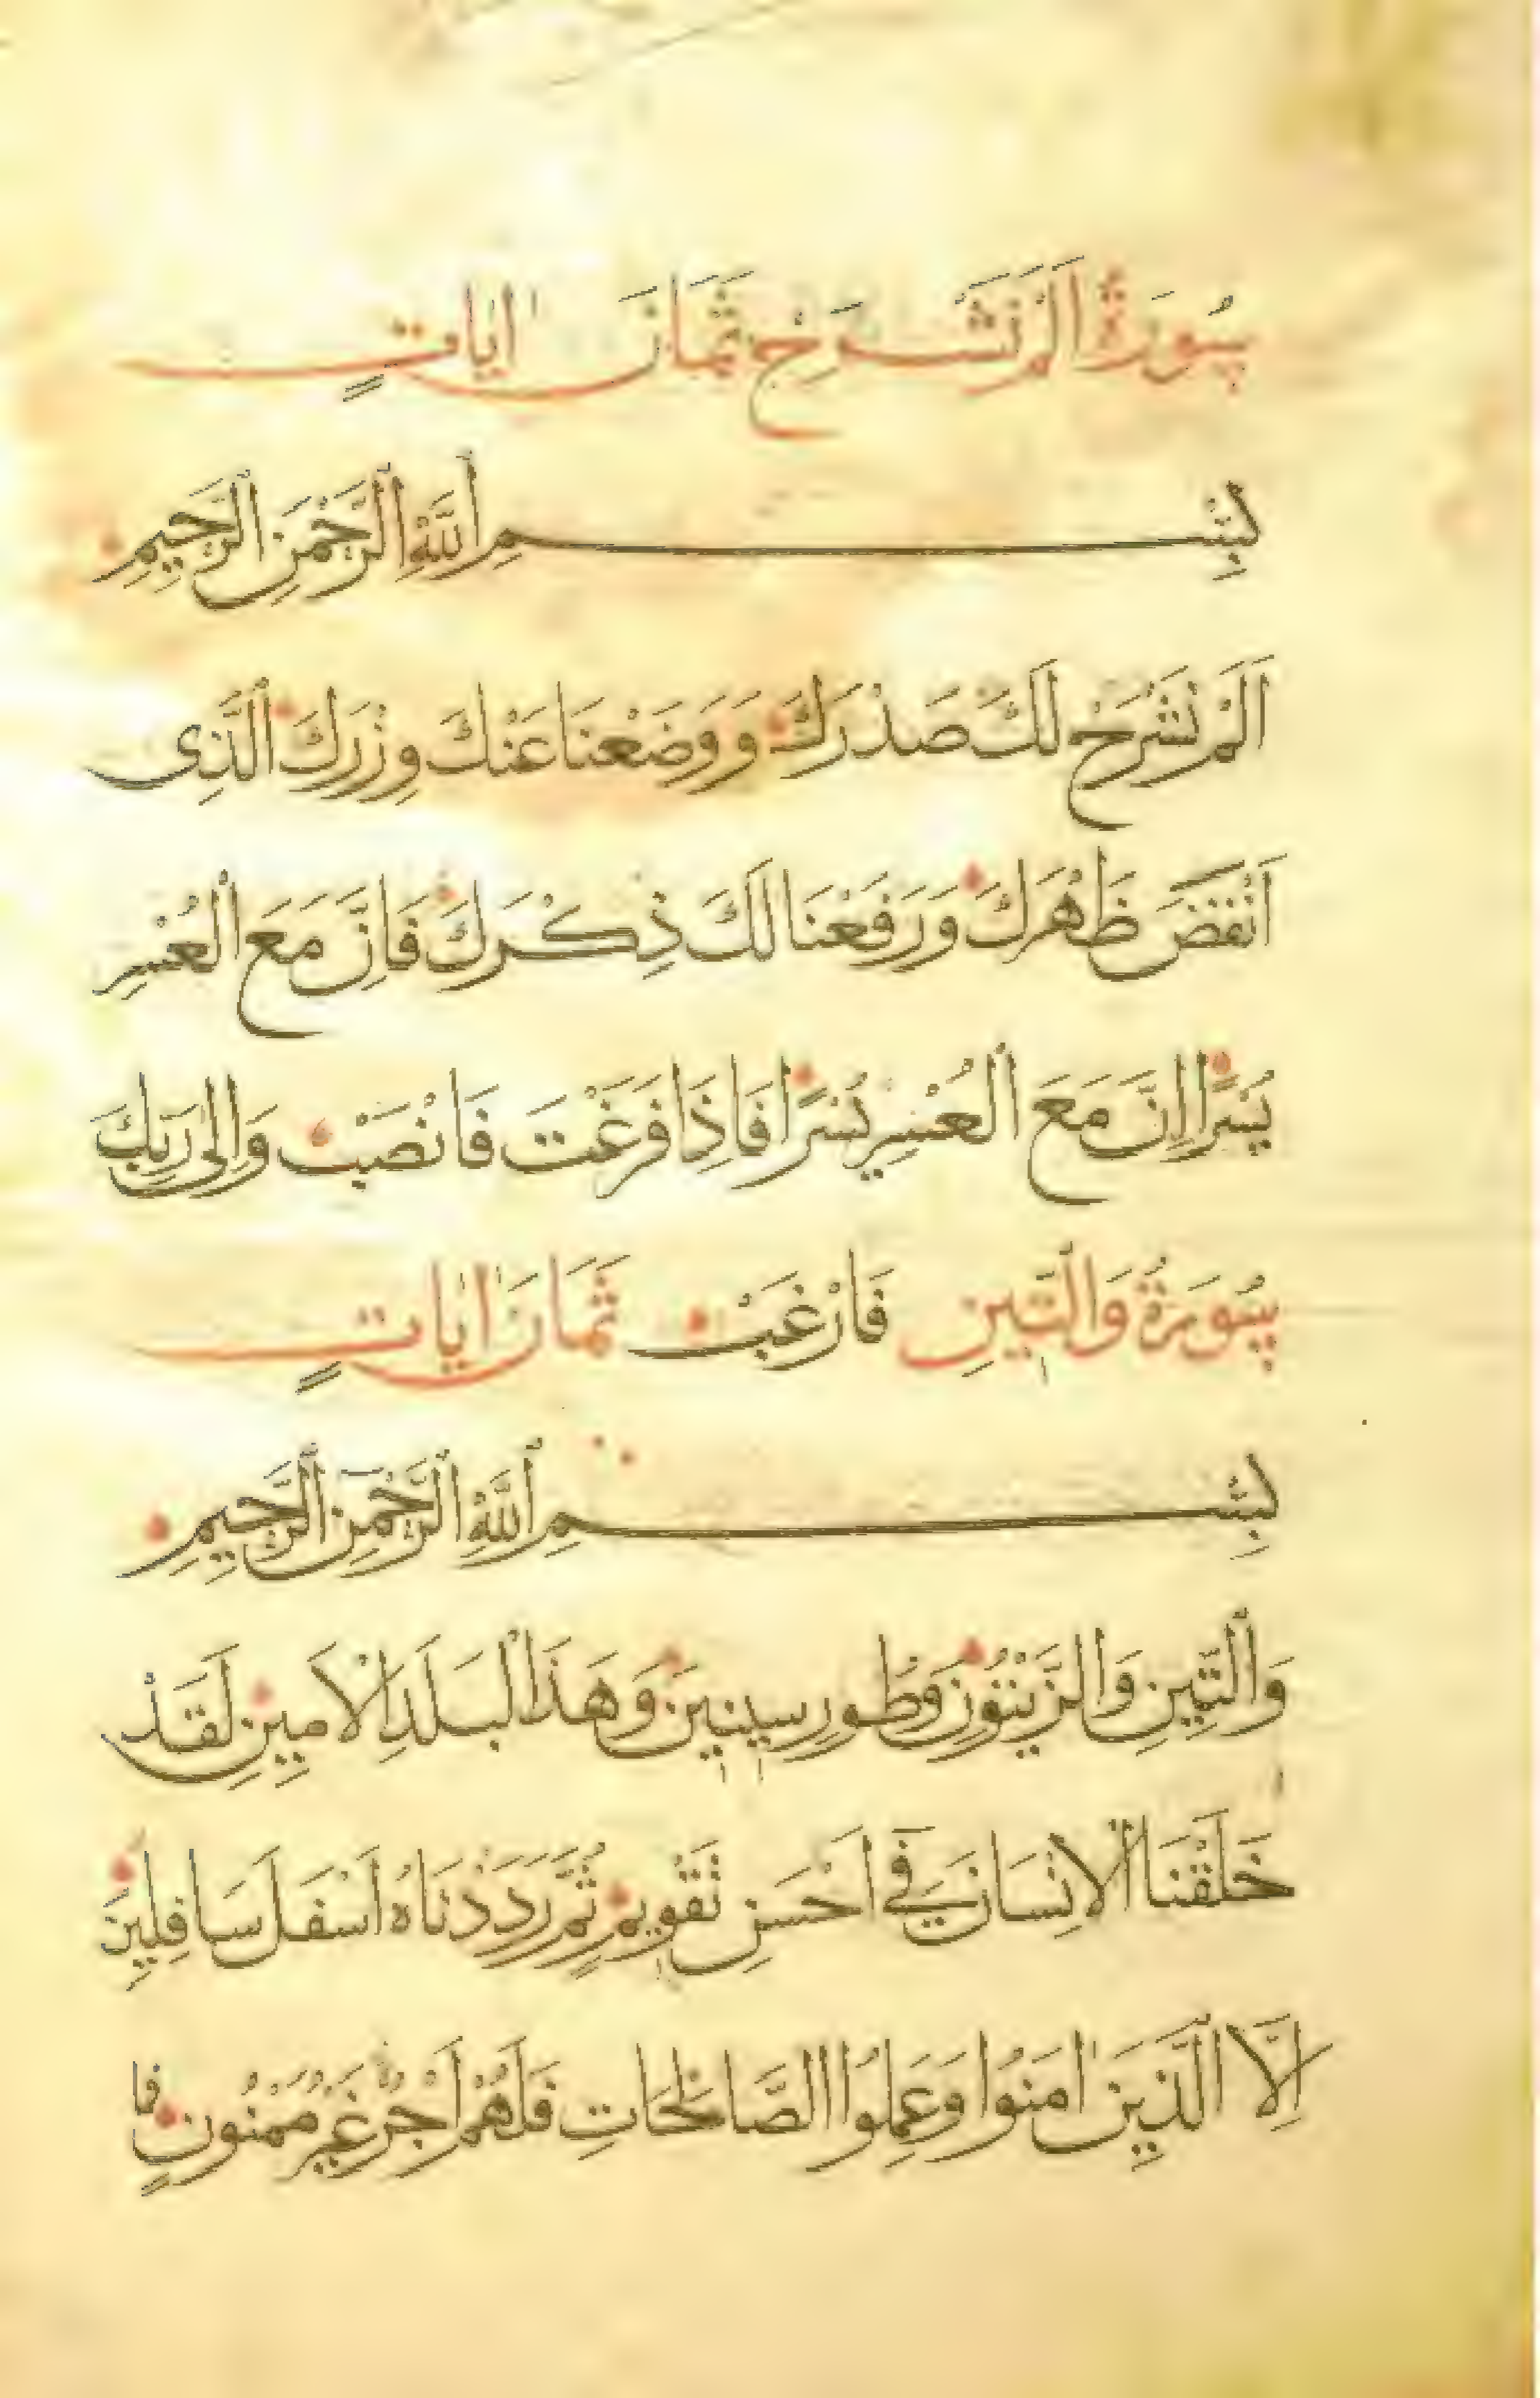 سُورَةُ اَلَمْ نَشْرَحْ ثَمَانَ اٰيَاتٍ
بِسْمِ ٱللَّهِ ٱلرَّحْمٰنِ ٱلرَّحِيمِ
اَلَمْ نَشْرَحْ لَكَ صَدْرَكَ وَوَضَعْنَا عَنْكَ وِزْرَكَ ٱلَّذِى
اَنْقَضَ ظَهْرَكَ وَرَفَعْنَا لَكَ ذِكْرَكَ فَاِنَّ مَعَ ٱلْعُسْرِ
يُسْرًا اِنَّ مَعَ ٱلْعُسْرِ يُسْرًا فَاِذَا فَرَغْتَ فَانْصَبْ وَاِلٰى رَبِّكَ
سُورَةُ وَٱلتِّينِ فَارْغَبْ ثَمَانَ اٰيَاتٍ
بِسْمِ ٱللَّهِ ٱلرَّحْمٰنِ ٱلرَّحِيمِ
وَٱلتِّينِ وَالزَّيْتُونِ وَطُورِ سِينِينَ وَهَذَا ٱلْبَلَدِ ٱلْاَمِينِ لَقَدْ
خَلَقْنَا ٱلْاِنْسَانَ فِي اَحْسَنِ تَقْوِيمٍ ثُمَّ رَدَدْنَاهُ اَسْفَلَ سَافِلِينَ
اِلَّا ٱلَّذِينَ اٰمَنُوا وَعَمِلُوا الصَّالِحَاتِ فَلَهُمْ اَجْرٌ غَيْرُ مَمْنُونٍ فما